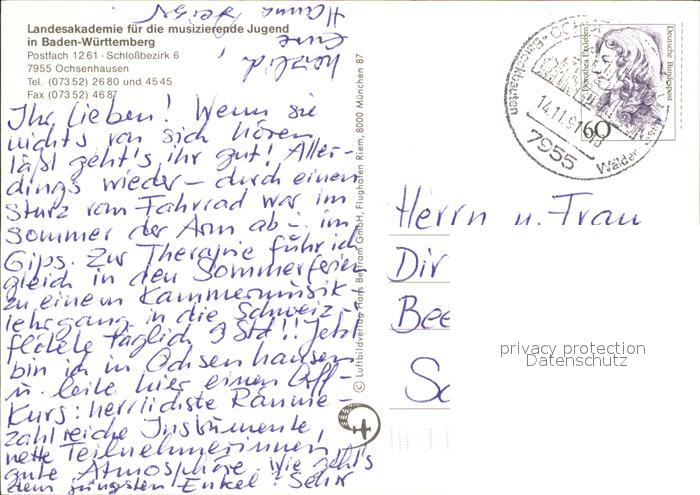 Landesakademie für die musizierende Jugend
in Baden-Württemberg
Postfach 12 61 · Schloßbezirk 6
7955 Ochsenhausen
Tel. (0 73 52) 26 80 und 45 45
Fax (0 73 52) 46 87
Ihr Lieben! Wenn sie
nichts von sich hören
läßt geht's ihr gut! Aller-
dings wieder – durch einen
Sturz vom Fahrrad war im
Sommer der Arm ab – im
Gips. Zur Therapie fuhr ich
gleich in den Sommerferien
zu einem Kammermusik-
lehrgang in die Schweiz –
flötete täglich 9 Std!! Jetzt
bin ich in Ochsenhausen
u. leite hier einen
Kurs: herrlichste Räume –
zahlreiche Instrumente
nette Teilnehmerinnen,
gute Atmosphäre. Wie geht's
dem jüngsten Enkel? Sehr
herzlich,
Eure
Hanna
© Luftbildverlag Hans Bertram GmbH, Flughafen Riem, 8000 München 87
Deutsche Bundespost
60
14.11.91
7955
Herrn u. Frau
Dir
Bee
Sc
privacy protection
Datenschutz